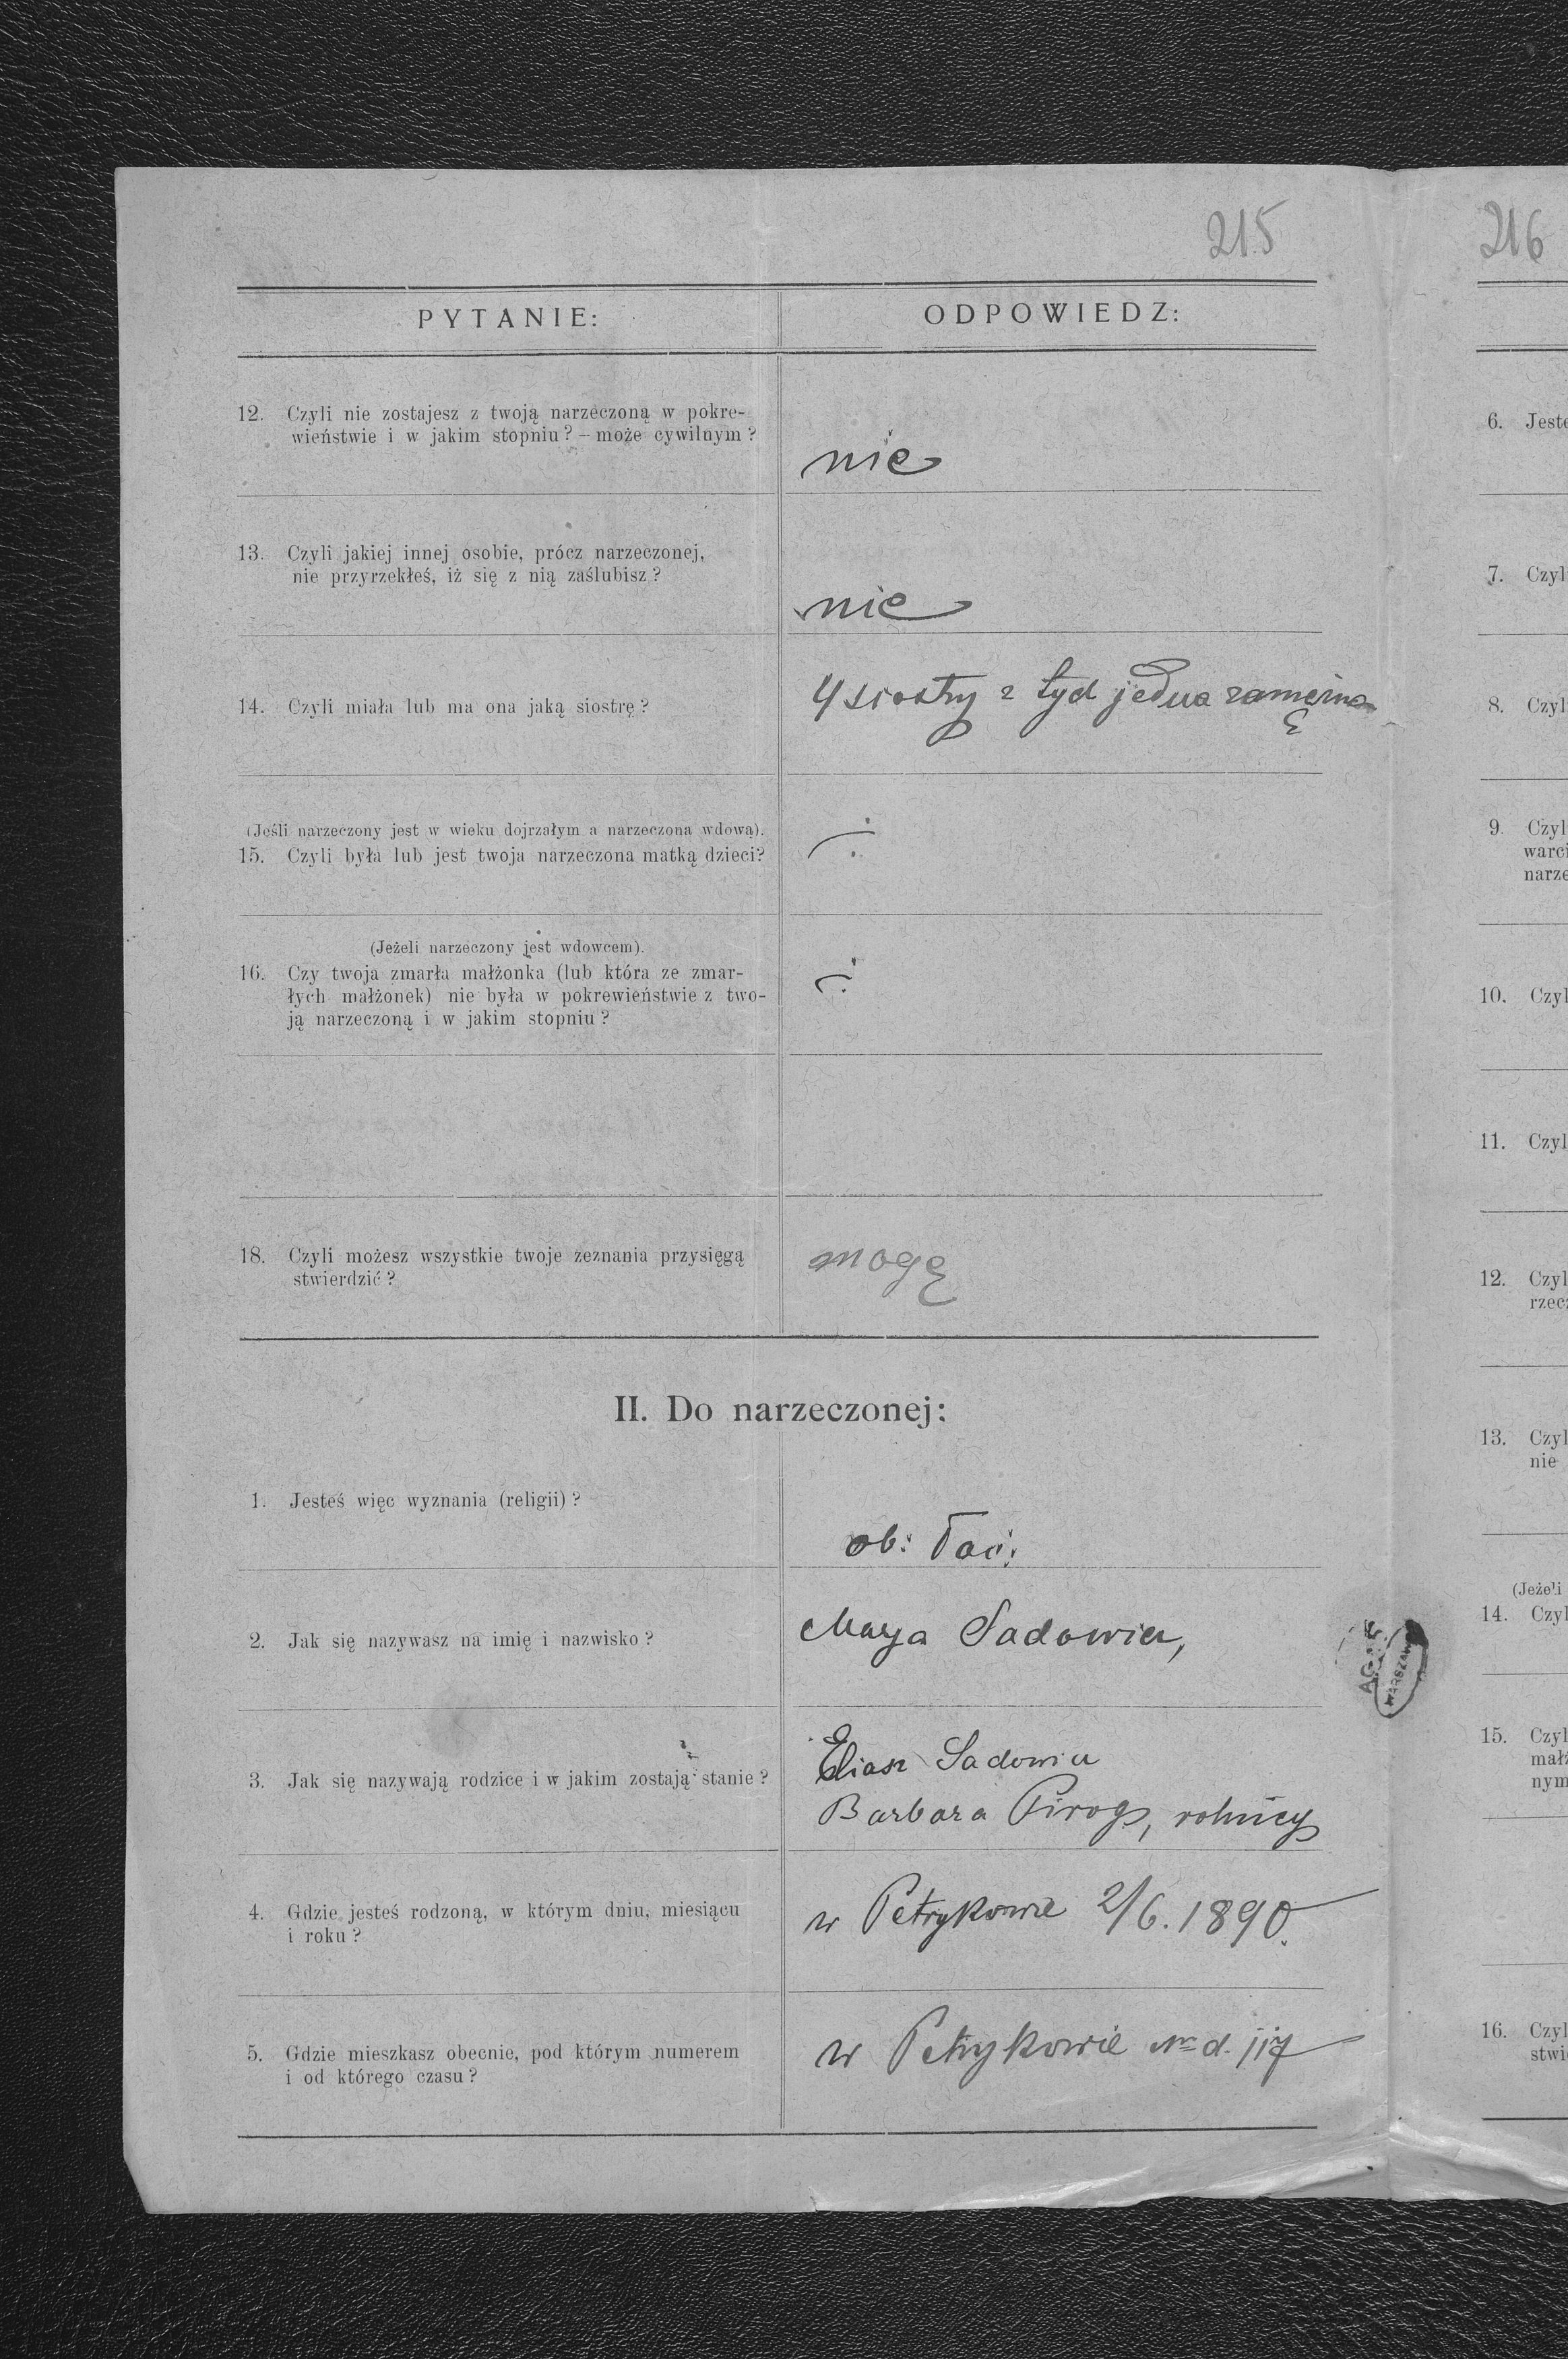 215
216
PYTANIE:
ODPOWIEDZ:
12. Czyli nie zostajesz z twoją narzeczoną w pokre-
wieństwie i w jakim stopniu? – może cywilnym?
nie
13. Czyli jakiej innej osobie, prócz narzeczonej,
nie przyrzekłeś, iż się z nią zaślubisz?
nie
14. Czyli miała lub ma ona jaką siostrę?
4 siostry z tych jedna zamężna
(Jeśli narzeczony jest w wieku dojrzałym a narzeczona wdową).
15. Czyli była lub jest twoja narzeczona matką dzieci?
(Jeżeli narzeczony jest wdowcem).
16. Czy twoja zmarła małżonka (lub która ze zmar-
łych małżonek) nie była w pokrewieństwie z two-
ją narzeczoną i w jakim stopniu?
18. Czyli możesz wszystkie twoje zeznania przysięgą
stwierdzić?
mogę
II. Do narzeczonej:
1. Jesteś więc wyznania (religii)?
ob: łać:
2. Jak się nazywasz na imię i nazwisko?
Marya Sadowicz,
3. Jak się nazywają rodzice i w jakim zostają stanie?
Eliasz Sadowicz
Barbara Pirog, rolnicy
4. Gdzie jesteś rodzoną, w którym dniu, miesiącu
i roku?
w Petrykowie 2/6. 1890.
5. Gdzie mieszkasz obecnie, pod którym numerem
i od którego czasu?
w Petrykowie Nr d. 117
AGAD
WARSZAWA
6. Jeste
7. Czyl
8. Czyl
9. Czyl
warci
narze
10. Czyl
11. Czyl
12. Czyl
rzecz
13. Czyl
nie
(Jeżeli
14. Czyl
15. Czyl
małż
nym
16. Czyl
stwi